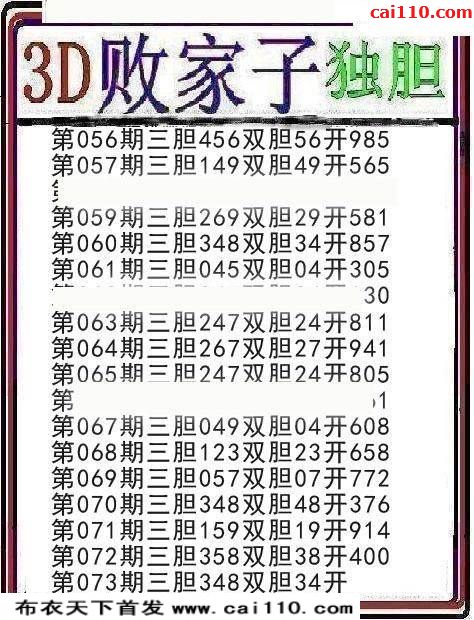 cai110.com
3D败家子独胆
第056期三胆456双胆56开985
第057期三胆149双胆49开565
第059期三胆269双胆29开581
第060期三胆348双胆34开857
第061期三胆045双胆04开305
30
第063期三胆247双胆24开811
第064期三胆267双胆27开941
第065期三胆247双胆24开805
第 1
第067期三胆049双胆04开608
第068期三胆123双胆23开658
第069期三胆057双胆07开772
第070期三胆348双胆48开376
第071期三胆159双胆19开914
第072期三胆358双胆38开400
第073期三胆348双胆34开
布衣天下首发 www.cai110.com